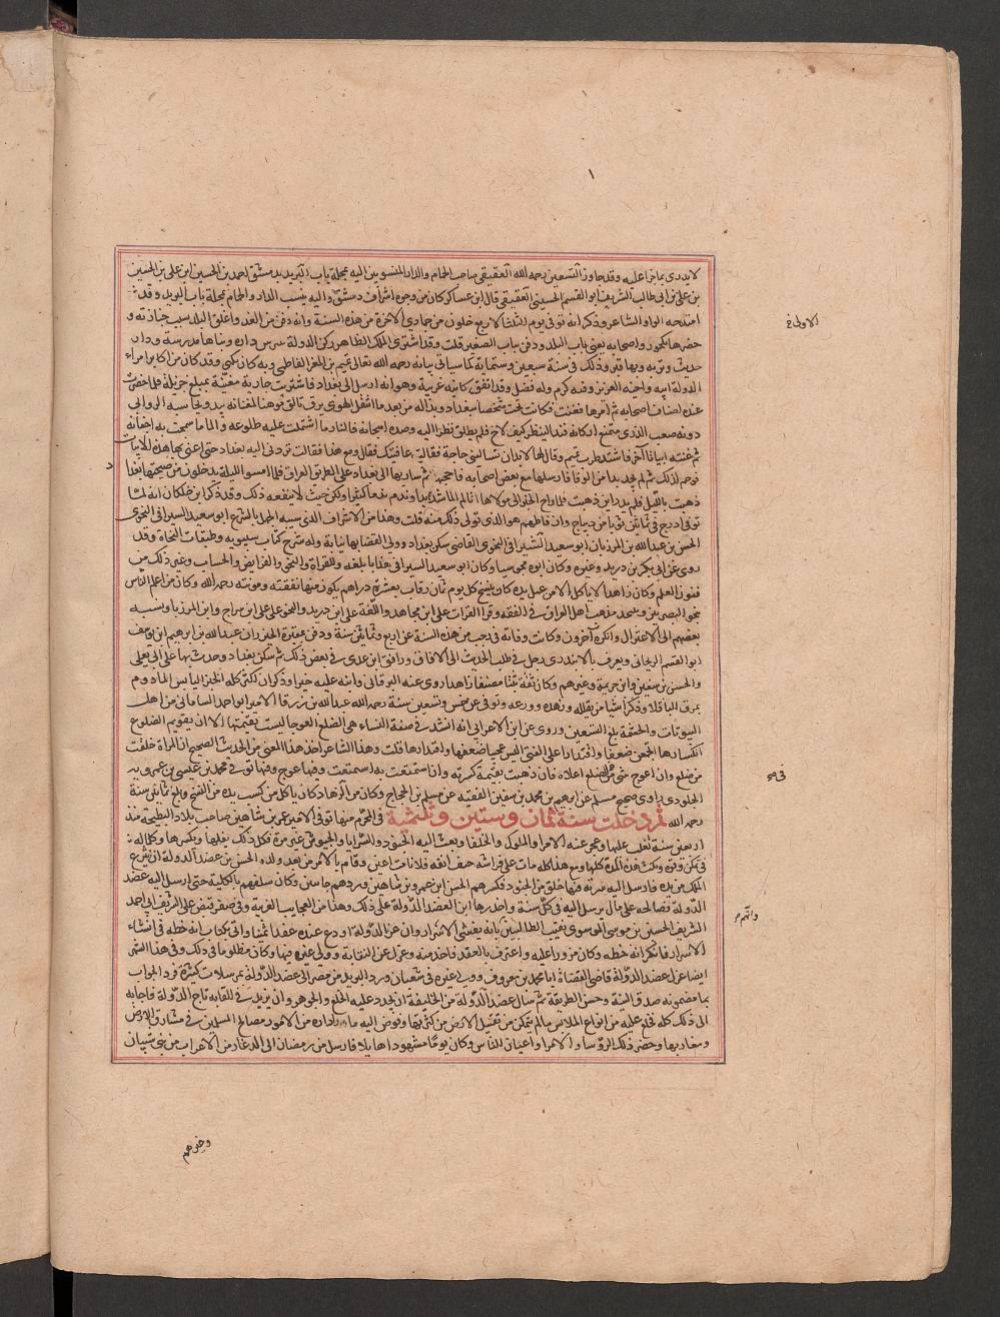 لا يدرى بما جرا عليه وقد جاوز التسعين رحمه الله العقيقي صاحب الحمام والدار المنسوبين اليه بمحلة باب البريد بدمشق احمد بن الحسين ابن علي بن الحسين
بن علي بن ابي طالب الشريف ابو القسم الحسيني العقيقي قال ابن عساكر كان من وجوه اشراف دمشق واليه ينسب الدار والحمام بمحلة باب البريد وقد
امتدحه الواوا الشاعر وذكر انه توفي يوم الثلثا لاربع خلون من جمادي الاخرة من هذه السنة وانه دفن من الغد واغلق البلد بسبب جنازته و
الاولى
حضرها بكجور واصحابه يعني نايب البلد ودفن بباب الصغير قلت وقد اشترى الملك الظاهر ركن الدولة بيبرس داره وبناها مدرسة ودار
حديث وتربة وبها قبره وذلك في سنة سبعين وستمائة كما سياتي بيانه رحمه الله تعالى تميم بن المعز الفاطمي وبه كان يكنى وقد كان من اكابر امراء
الدولة ابيه واخيه العزيز وفيه كرم وله فضل وقد اتفق كاينه غريبة وهو انه ارسل الى بغداد فاشتريت جارية مغنية بمبلغ جزيلة فلما حضرت
عنده اضاف اصحابه ثم امرها فغنت وكانت تحب شخصا ببغداد وبدا له من بعد ما انتقل الهوى برق تالق موهنا لمعانه يبدو كحاشية الردا
دونه صعب الذرى متمنع اركانه فبدا لينظر كيف لاح فلم يطلق نظرا اليه وصده اشجانه فالنار ما اشتملت عليه ضلوعه والما ما سمحت به اجفانه
ثم غنته ابياتا اخر فاشتد طرب تميم وقال لها لابد ان تساليني حاجة فقالت عافيتك فقال ومع هذا فقالت تردني الى بغداد حتى اغني بهذه الابيات
فوجم لذلك ثم لم يجد بدا من الوفا فارسلها مع بعض اصحابه فاحججها ثم سار بها الى بغداد على طريق العراق فلما امسوا الليلة يدخلون من صبيحتها بغداد
ذهبت بالليل فلم يدر اين ذهبت
توفي ادرج في ثمانين ثوبا من ديباج
الحسن بن عبد الله بن المرزبان ابو سعيد السيرافي النحوي القاضي سكن بغداد وولي القضا بها نيابة وله شرح كتاب سيبويه وطبقات النحاة وقد
روى عن ابي بكر بن دريد وغيره وكان ابوه مجوسيا وكان ابو سعيد السيرافي هذا عالما بلغه وللقراة والنحو والفرايض والحساب وغير ذلك من
فنون العلم وكان زاهدا لا ياكل الا من عمل يده كان ينسخ كل يوم ثمان رقات بعشرة دراهم يكون منها نفقته ومونته رحمه الله وكان من اعلم الناس
بنحو البصريين وينتحل مذهب اهل العراق في الفقه وقرا القراات على ابن مجاهد واللغة على ابن دريد والنحو على ابن سراج وابن المرزبان ونسبه
بعضهم الى الاعتزال وانكره آخرون وكانت وفاته في رجب من هذه السنة عن اربع وثمانين سنة ودفن بمقبرة الخيزران عبد الله بن ابرهيم ابن يوسف
ابو القسم الريحاني ويعرف بالابندوني رحل في طلب الحديث الى الافاق ورافق ابن عدي في بعض ذلك ثم سكن بغداد وحدث بها عن ابي يعلى
والحسن بن سفين وابن خزيمة وغيرهم وكان ثقة ثبتا مصنفا زاهدا روى عنه البرقاني واثنى عليه خيرا وذكر ان اكثر اكله الخبز اليابس المادوم
بمرق الباقلا وذكر اشيا من تقلله وزهده وورعه وتوفي عن خمس وتسعين سنة رحمه الله عبد الله بن ورقا الامير ابو احمد الساماني من اهل
البيوتات والحشمة بلغ التسعين وروى عن ابن الاعرابي انه انشد في صفة النساء هي الضلع العوجا ليست تقيمها الا ان تقويم الضلوع
انكسارها ايجمعن ضعفا واقتدارا على الفتى اليس عجيبا ضعفها واقتدارها قلت وهذا الشاعر اخذ هذا المعنى من الحديث الصحيح ان المراة خلقت
من ضلع وان اعوج شي في الضلع اعلاه فان ذهبت تقيمه كسرته وان استمتعت به استمتعت وفيها عوج وفيها توفي محمد بن عيسى بن عمرويه
الجلودي راوي صحيح مسلم عن ابرهيم بن محمد بن سفين الفقيه عن مسلم بن الحجاج وكان من الزهاد كان ياكل من كسب يده من النسخ وبلغ ثمانين سنة
رحمه الله ثم دخلت سنة ثمان وستين وثلثمئة في المحرم منها توفي الامير عمر بن شاهين صاحب بلاد البطيحة منذ
اربعين سنة تغلب عليها وعجز عنه الامرا والملوك والخلفا وبعث اليه الجنود والسرايا والجيوش غير مرة فكل ذلك يفلها ويكسرها وكل ماله
في تمكن وقوة ومكث هذه المدة كلها ومع هذا كله مات على فراشه حتف انفه فلا نامت اعين وقام بالامر من بعده ولده الحسن بن عضد الدولة ان ينتزع
الملك من يده فارسل اليه سرية فيها خلق من الجنود فكسرهم الحسن ابن عمرو بن شاهين وردهم خاسئين وكان سلفهم بالكلية حتى ارسل اليه عضد
الدولة فصالحه على مال يرسل اليه في كل سنة واخذ رهائن العضد الدولة على ذلك وهذا من العجايب الغريبة وفي صفر قبض على الشريف ابي احمد
واتهم
الشريف الحسين بن موسى الموسوي نقيب الطالبيين بانه يفشي الاسرار وان عز الدولة اودع عنده عقدا ثمينا واتى بكتاب انه خطه في افشاء
الاسرار فانكر انه خطه وكان مزورا عليه واعترف بالعقد فاخذ منه وعزل عن النقابة وولي غيره فيها وكان مظلوما في ذلك وفي هذا الشهر
ايضا عزل عضد الدولة قاضي القضاة ابا محمد بن معروف وولى غيره في شعبان ورد البريد من مصر الى عضد الدولة بمرسلات كثيرة فرد الجواب
بما مضمونه صدق النية وحسن الطريقة ثم سال عضد الدولة من الخليفة ان يجدد عليه الخلع والجوهر وان يزيد في القابه تاج الدولة فاجابه
الى ذلك كله فخلع عليه من انواع الملابس ما لم يتمكن من تقبيل الارض من كثرتها وفوض اليه ما وراء داره من الامور ومصالح المسلمين في مشارق الارض
ومغاربها وحضر ذلك الروسا والامرا واعيان الناس وكان يوما مشهودا هايلا فارسل من رمضان الى الدغار من الاعراب من بني شيبان
وغيرهم